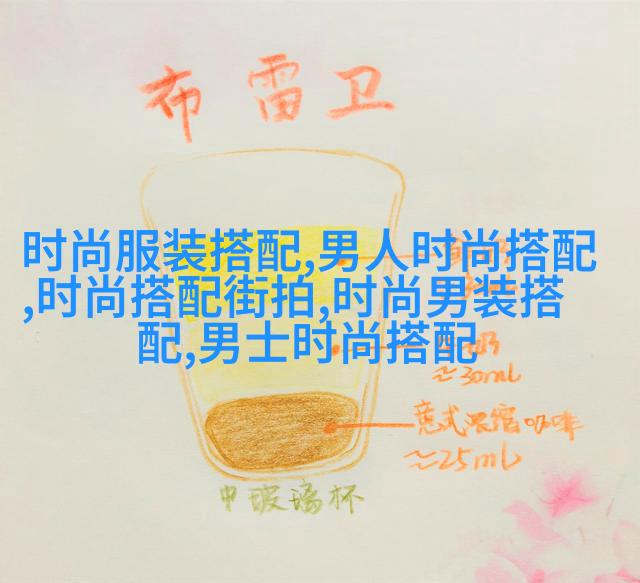 布雷卫
时尚服装搭配,男人时尚搭配
,时尚搭配街拍,时尚男装搭
配,男士时尚搭配
奶
≈30ml
意式浓缩咖啡
≈25ml
中玻璃杯